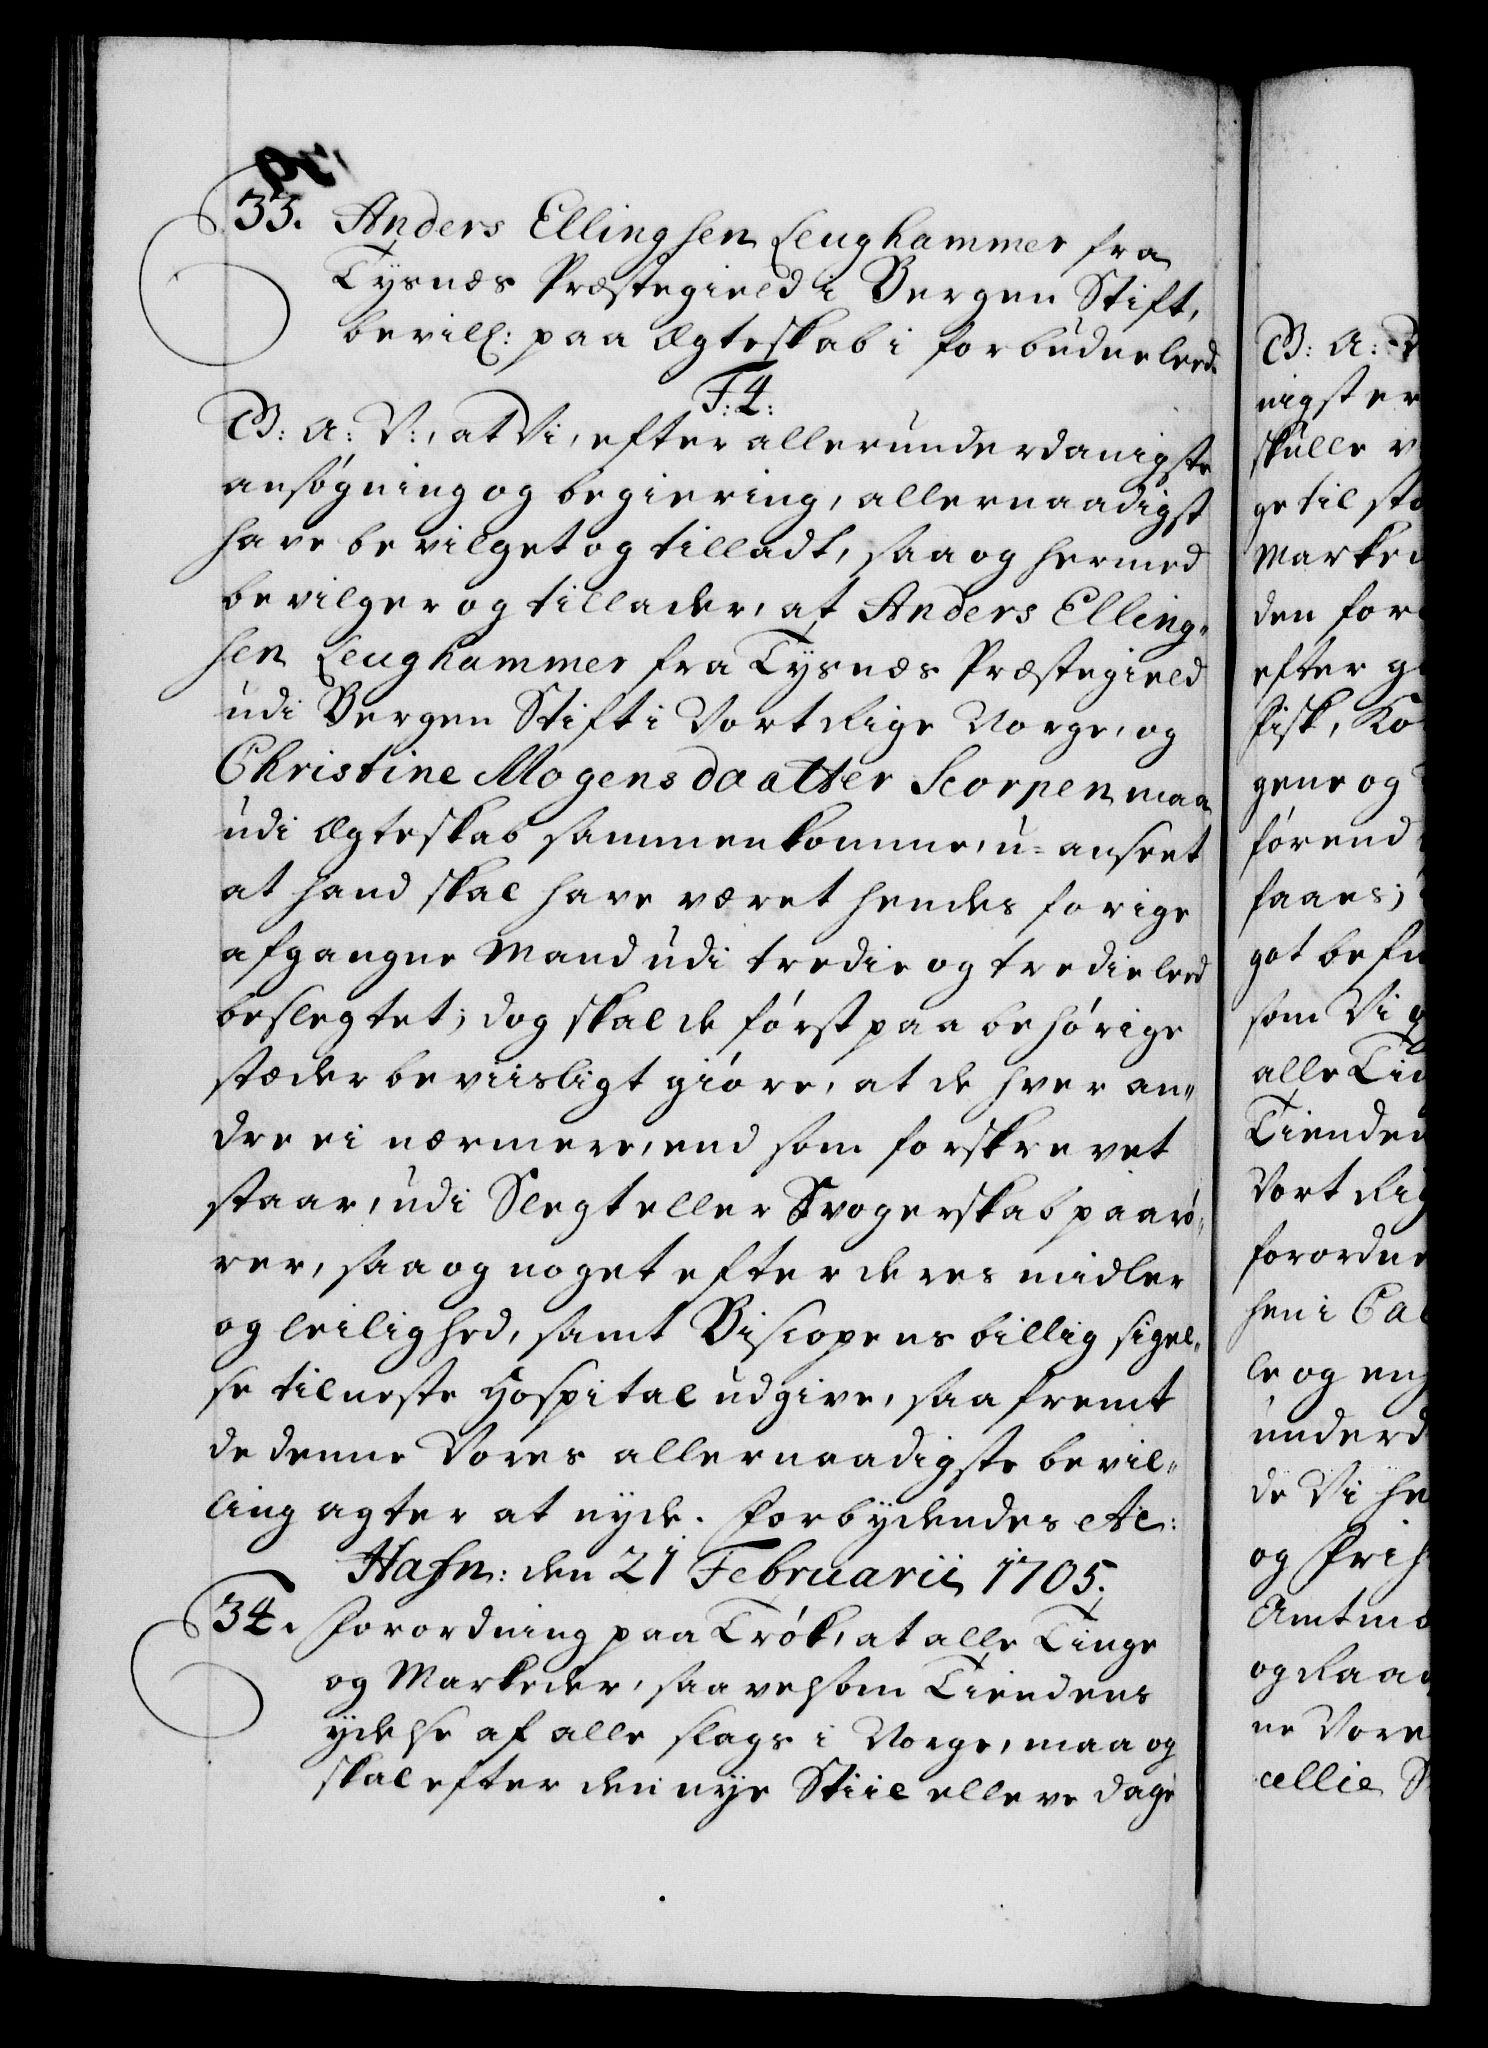 33. Anders Ellingsen Leughammer fra
Tysnæs Præstegield i Bergen Stift,
bevill: paa Ægteskab i forbudne leed.
F: 4:
G: A: V:, at Vi, efter allerunderdanigste
ansøgning og begiering, allernaadigst
have bevilget og tilladt, saa og hermed
bevilger og tillader, at Anders Elling-
sen Leughammer fra Tysnæs Præstegield
udi Bergen Stift i Vort Rige Norge, og
Christine Mogensdaatter Scorpen maa
udi Ægteskab sammenkomme, u-anseet
at hand skal have været hendes forige
afgangne Mand udi tredie og tredie leed
beslegtet; dog skal de først paa behørige
stæder beviisligt giøre, at de hver an-
dre ei nærmere, end som forskrevet
staar, udi Slegt eller Svogerskab paarø-
rer, saa og noget efter deres midler
og leilighed, samt Biscopens billig sigel-
se til neste Hospital udgive, saa fremt
de denne Vores allernaadigste bevil-
ling agter at nyde. Forbydendes Ac:
Hafn: den 21 Februarii 1705.
34. Forordning paa Trök, at alle Tinge
og Markeder, saavelsom Tiendens
ydelse af alle slags i Norge, maa og
skal efter den nye Stiil elleve dage
G: A:
nigst er
skulle
ge til
Marked
den for
efter
Fisk,
gene og
førend
faaes;
got
som Vi
alle
Tienden
Vort
forordne
sen i
le og
underd
de Vi
og
Amtm
og Raad
ne Vore
cellie